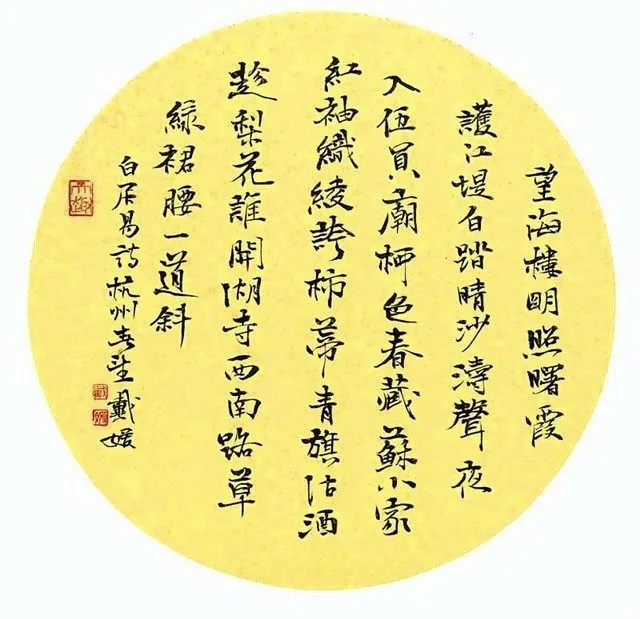 望海樓明照曙霞
護江堤白踏晴沙濤聲夜
入伍員廟柳色春藏蘇小家
紅袖織綾誇柿蒂青旗沽酒
趁梨花誰開湖寺西南路草
綠裙腰一道斜
白居易詩杭州春望戴媛